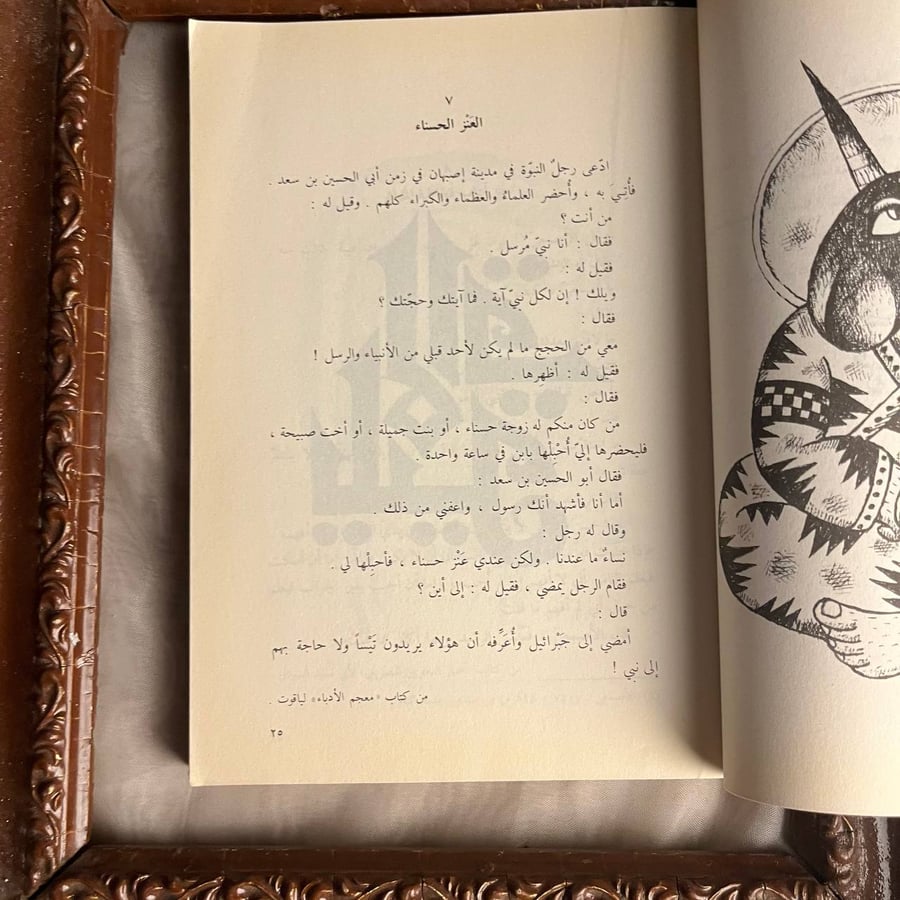 ٧
العَنْز الحسناء
ادّعى رجلٌ النبوّة في مدينة إصبهان في زمن أبي الحسين بن سعد .
فأُتِيَ به ، وأُحضر العلماءُ والعظماء والكبراء كلهم . وقيل له :
من أنت ؟
فقال : أنا نبيّ مُرسل .
فقيل له :
ويلك ! إن لكل نبيّ آية . فما آيتك وحجّتك ؟
فقال :
معي من الحجج ما لم يكن لأحد قبلي من الأنبياء والرسل !
فقيل له : أظهِرها .
فقال :
من كان منكم له زوجة حسناء ، أو بنت جميلة ، أو أخت صبيحة ،
فليحضرها إليّ أُحْبِلْها بابن في ساعة واحدة .
فقال أبو الحسين بن سعد :
أما أنا فأشهد أنك رسول ، واعفني من ذلك .
وقال له رجل :
نساءٌ ما عندنا . ولكن عندي عَنْز حسناء ، فأحبِلْها لي .
فقام الرجل يمضي ، فقيل له : إلى أين ؟
قال :
أمضي إلى جَبْرائيل وأُعَرِّفه أن هؤلاء يريدون تَيْساً ولا حاجة بهم
إلى نبي !
من كتاب «معجم الأدباء» لياقوت .
٢٥